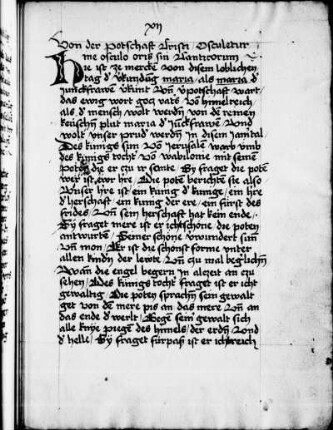 xvj
Von der Potschaft Cristi Osculetur
me osculo oris sui Canticorum
Hie ist ze mercken von disem loblichen
tag d' vkundung maria als maria d'
junckfrawe vkunt vn v'potschaft wart
das ewig wort gotz vats von himelreich
als d' mensch wolt werden von de reinen
keuschen plut maria d' junckfrawe vnd
wolt vnser prud' werden in disem jamital
Des kunigs sun von Jerusale warb vmb
des kunigs tocht' vo babilonie mit seine
Poten die er czu ir sante Sy fraget die poten
wer ist ewr hre Die poten berichte sie also
Vnser hre ist ein kunig d' kunige ein hre
d' herschaft ein kunig der ere ein first des
frides vnd sein herschaft hat kein ende
Sy fraget mere ist er icht schone die poten
antwurte Seiner schone v'wundert sunn
vnd mon Er ist die schonst forme vnter
allen kinden der lewt vnd czu mal beglichen
Wan die engel begern in alczeit an czu
sehen Des kunigs tocht' fraget ist er icht
gewaltig Die poten sprachen sein gewalt
get von de mere pis an das mere vnd an
das ende d' werlt Gege sein gewalt sich
alle knye piegen des himels der erden vnd
d' helle Sy fraget furpas ist er icht reich